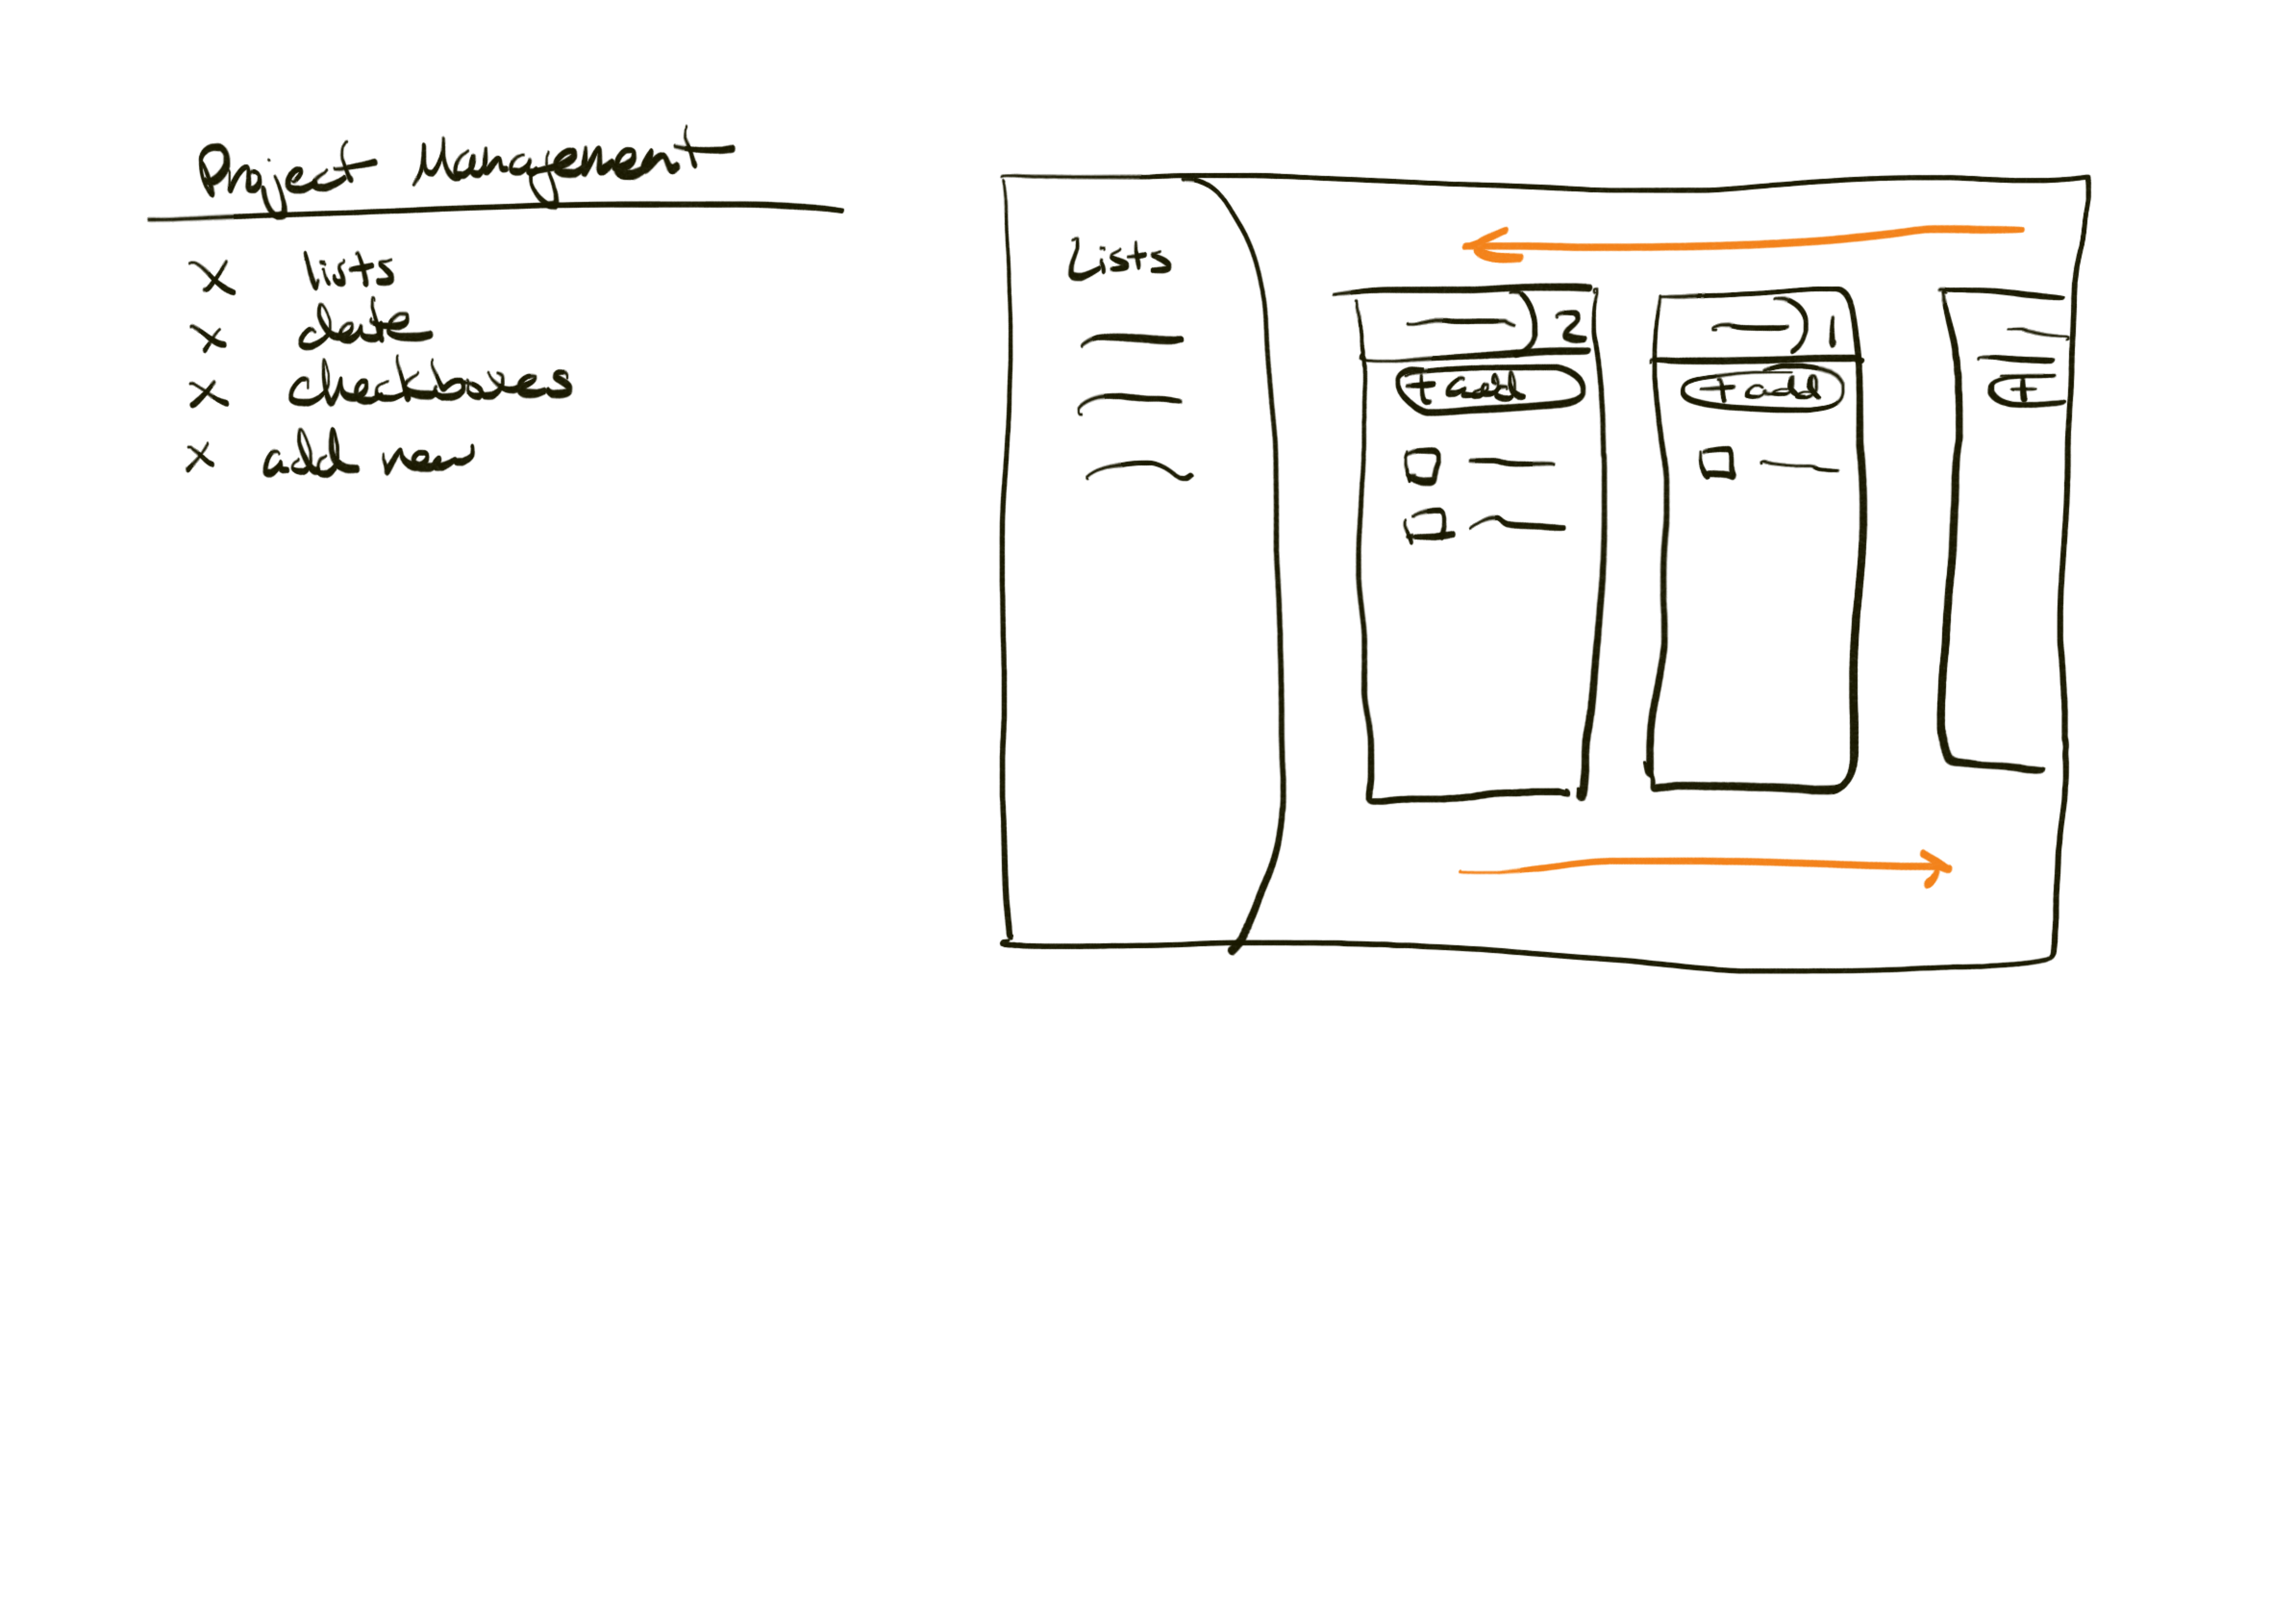 Project Management
x lists
x date
x checkboxes
x add new
Lists
2
+ add
1
+ add
+